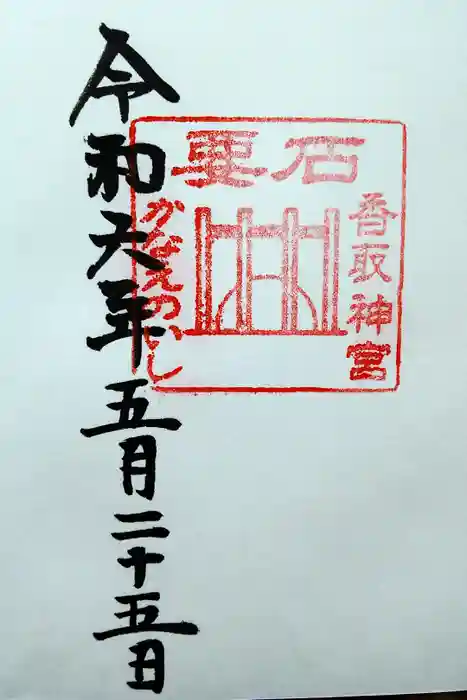 香取神宮
要石
かなめのいし
令和六年五月二十五日